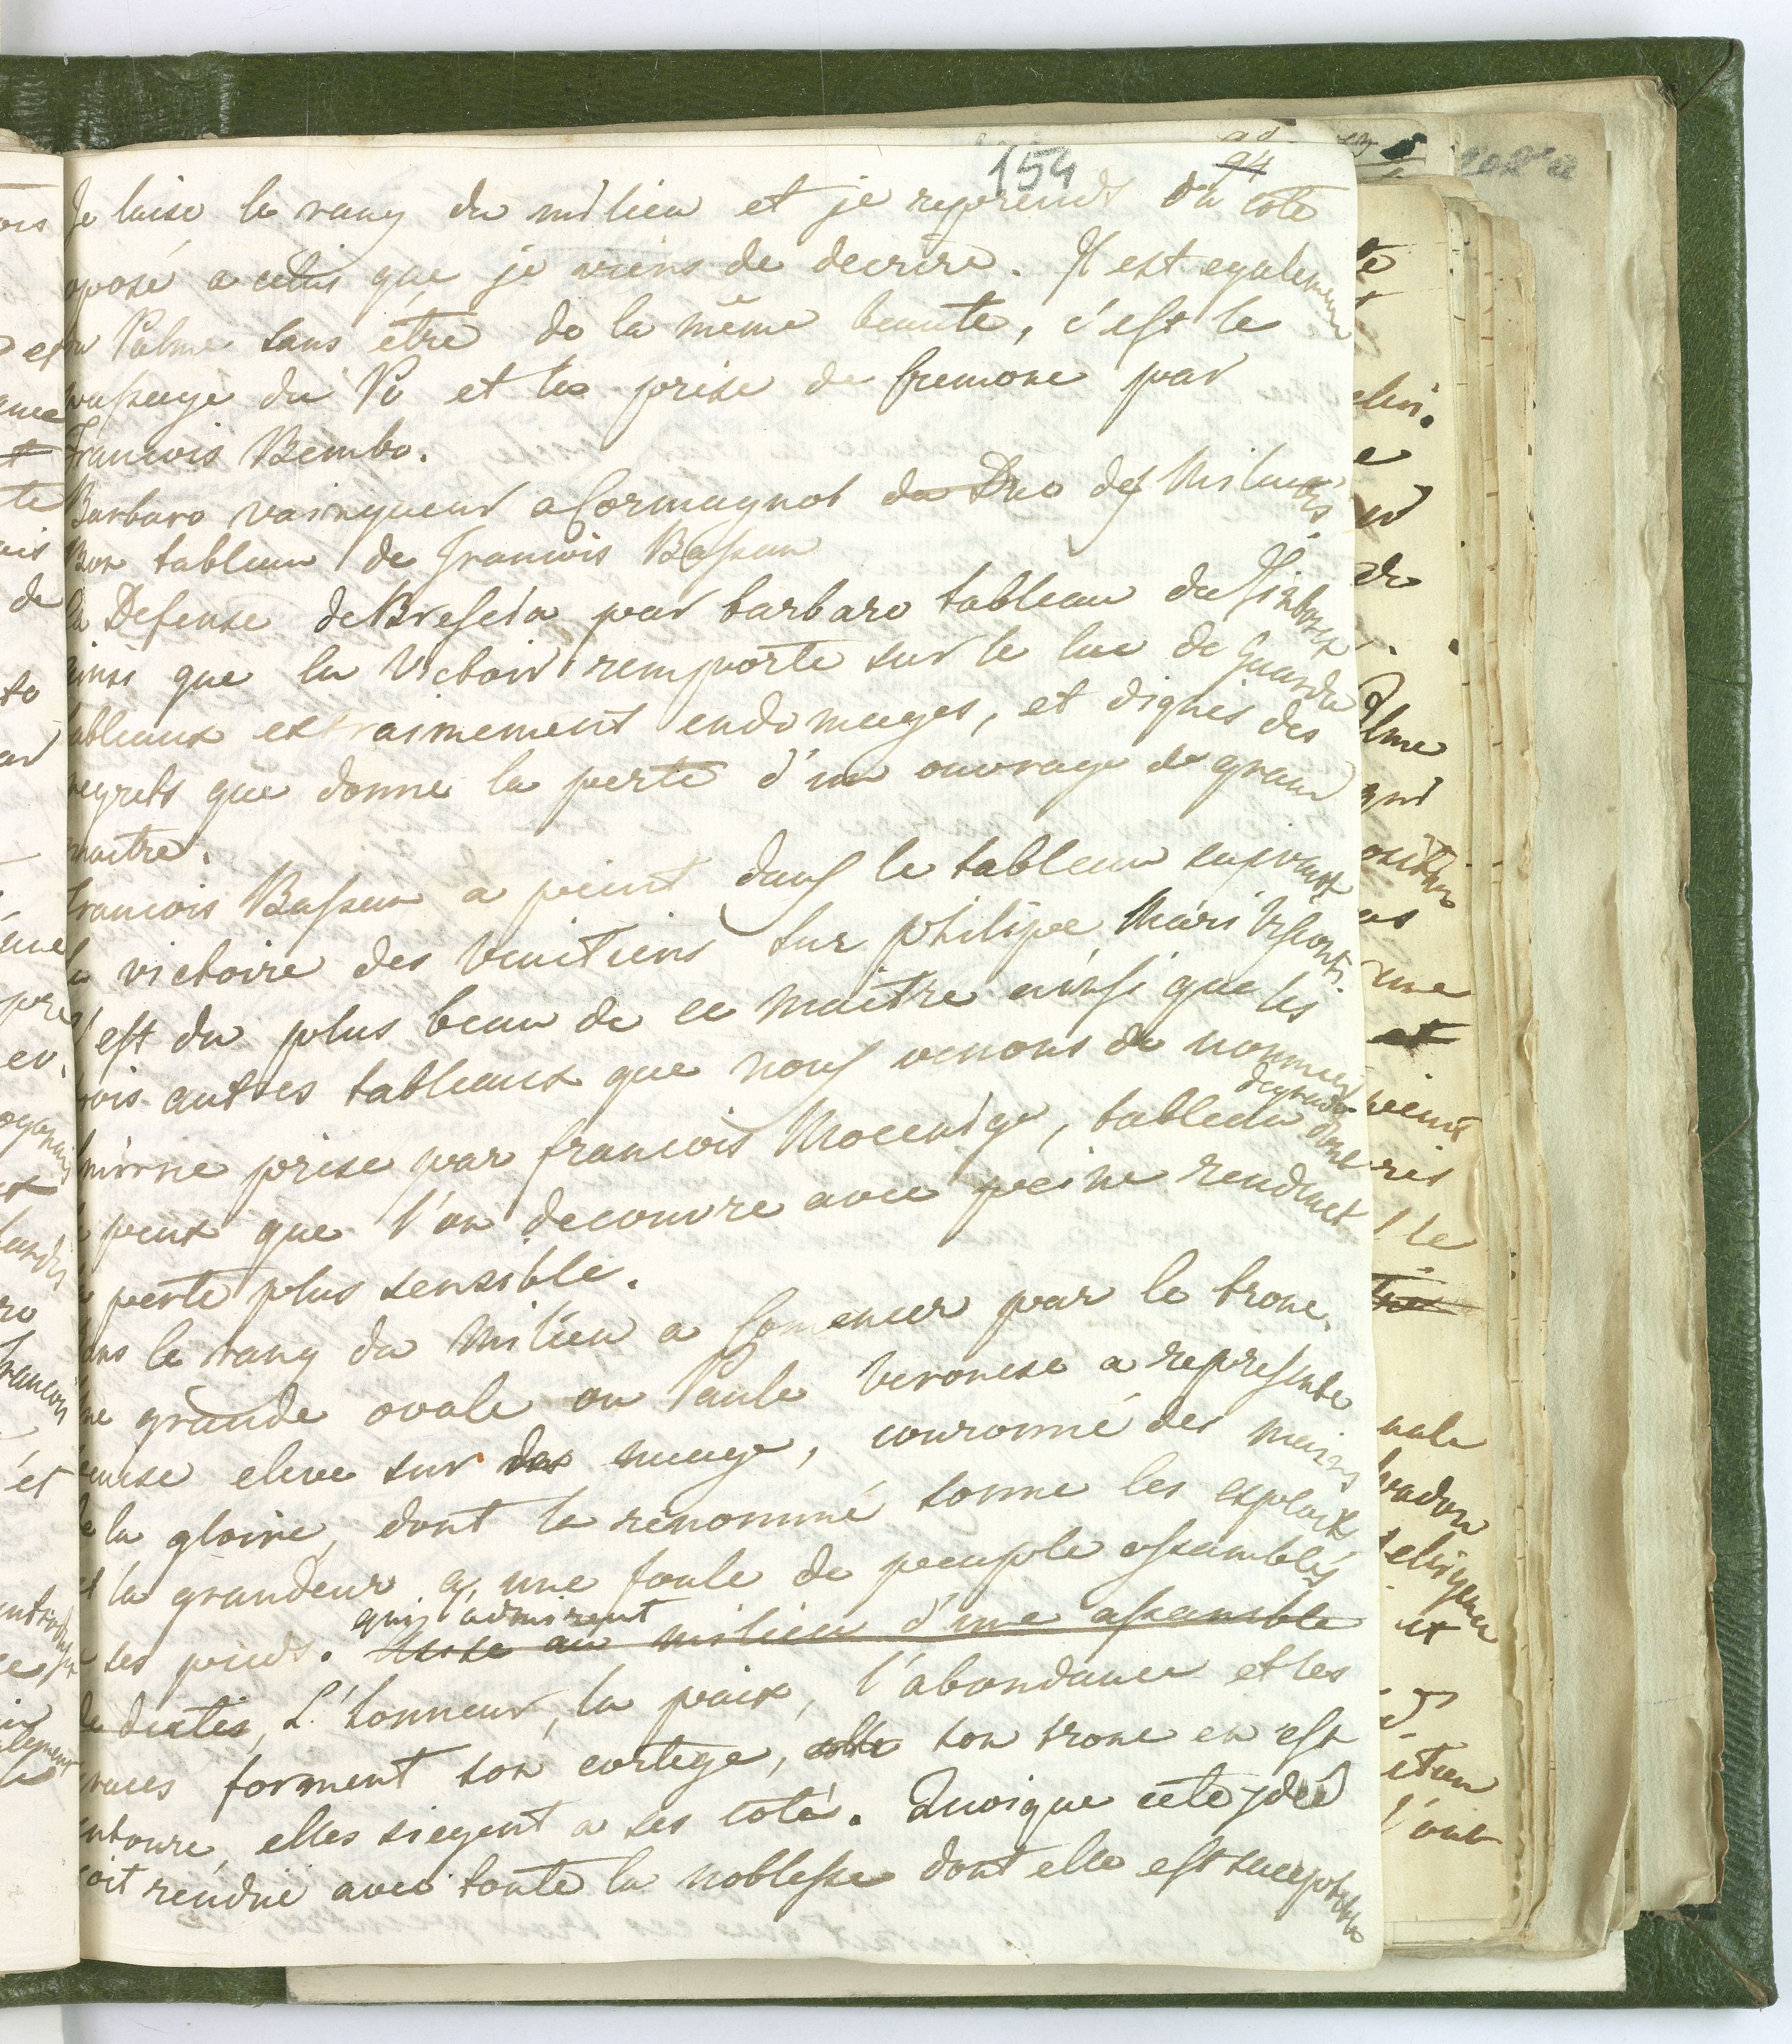 154
94
Je laise le rang du milieu et je reprends du coté
oposé a celui que je viens de decrire. Il est egalement
du Palme sans être de la même beauté, c'est le
passage du Po et la prise de Cremone par
Francois Bembo.
Barbaro vainqueur a Carmagnol du Duc des Milanois
Bon tableau de Francois Bassan
la Defense de Brescia par barbaro tableau du Tintoret
ainsi que la Victoir remporte sur le lac de Guarda
tableaux extraimement endomages, et dignes des
regrets que donne la perte d'un ouvrage de grand
maitre.
Francois Bassan a peint dans le tableau suivant
la victoire des Venitiens sur philipe Mari Visconti.
C'est du plus beau de ce Maitre ainsi que les
trois autres tableaux que nous venons de nommer
Smirne prise par francois Mocenigo, tableau degradé dont
le peux que l'on decouvre avec peine rendent
la perte plus sensible.
Dans le rang du Milieu a Comencer par le trone.
Une grande ovale ou Paule Veronese a represente
Venise eleve sur des nuage, couronné des mains
de la gloire, dont la renommé sonne les exploix
et la grandeur a une foule de peuple assemblés
a ses pieds. qui l'admirent au milieu d'une assemble
de dieties, L'honneur, la paix, l'abondance et les
graces forment son cortege, son trone en est
entouré, elles siegent a ses cotés. Quoique cete ydeé
soit rendue avec toute la noblesse dont elle est suceptible